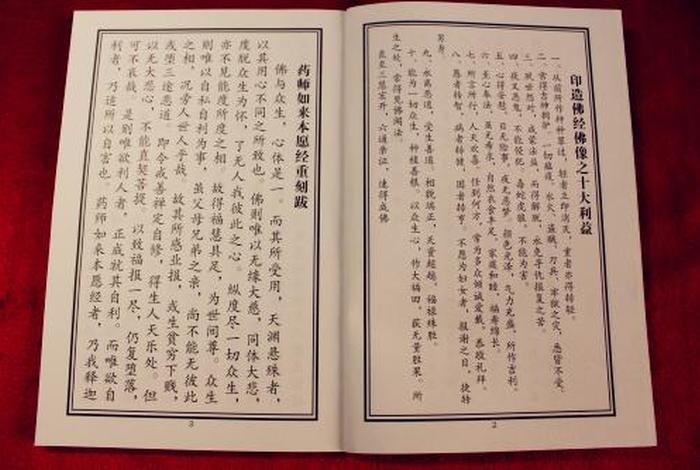 印造佛经佛像之十大利益
一、从前所作种种罪过，轻者立即消灭，重者亦得转轻。
二、常得吉神拥护，一切瘟疫、水火、盗贼、刀兵、牢狱之灾，悉皆不受。
三、夙世怨对，咸蒙法益，而得解脱，永免寻仇报复之苦。
四、夜叉恶鬼，不能侵犯。毒蛇虎狼，不能为害。
五、心得安慰，日无险事，夜无恶梦。颜色光泽，气力充盛，所作吉利。
六、至心奉法，虽无希求，自然衣食丰足，家庭和睦，福寿绵长。
七、所言所行，人天欢喜。任到何方，常为多众倾诚爱戴，恭敬礼拜。
八、愚者转智，病者转健，困者转亨。不愿为妇女者，报谢之日，捷转
男身。
九、永离恶道，受生善道。相貌端正，天资超越，福禄殊胜。
十、能为一切众生，种植善根。以众生心，作大福田，获无量胜果。所
生之处，常得见佛闻法，
直至三慧宏开，六通亲证，速得成佛
2
药师如来本愿经重刻跋
佛与众生，心体是一。而其所受用，天渊悬殊者，
以其用心不同之所致也。佛则唯以无缘大慈，同体大悲，
度脱众生为怀，了无人我彼此之心。纵度尽一切众生，
亦不见能度所度之相。故得福慧具足，为世间尊。众生
则唯以自私自利为事，虽父母兄弟之亲，尚不能无彼此
之相，况旁人世人乎哉。故其所感业报，或生贫穷下贱，
或堕三途恶道。即令戒善禅定自修，得生人天乐处。但
以无大悲心，不能直契菩提。以致福报一尽，仍复堕落，
可不哀哉。是则唯欲利人者，正成就其自利。而唯欲自
利者，乃适所以自害也。药师如来本愿经者，乃我释迦
3